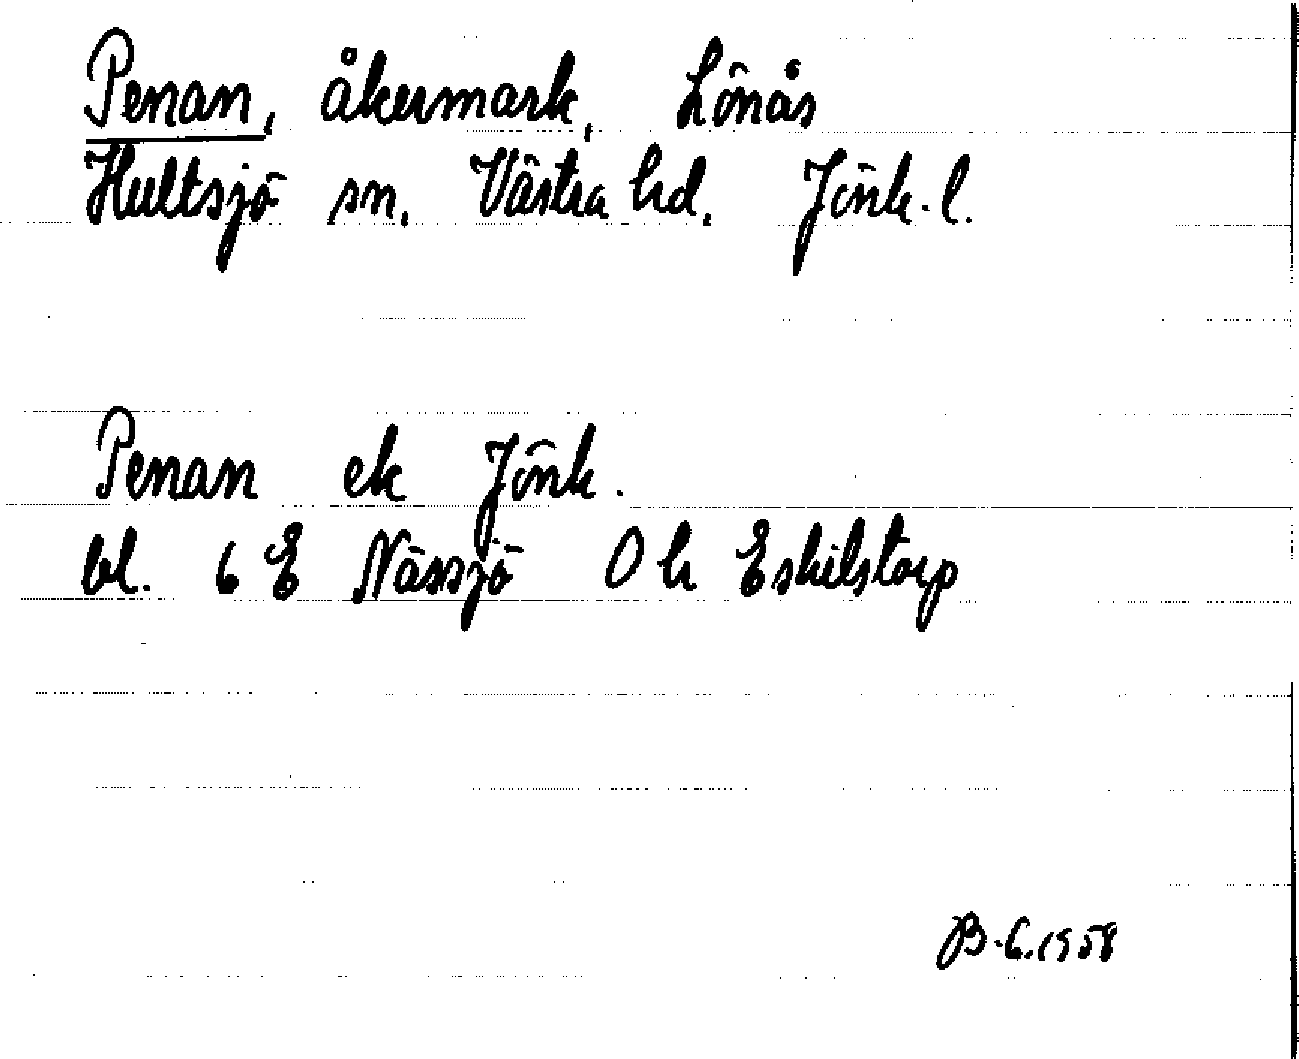 Penan, åkermark, Lönås
Hultsjö sn. Västra hd. Jönk. l.
Penan ek Jönk.
bl. 6 E Nässjö 0 h Eskilstorp
B.G. 1958